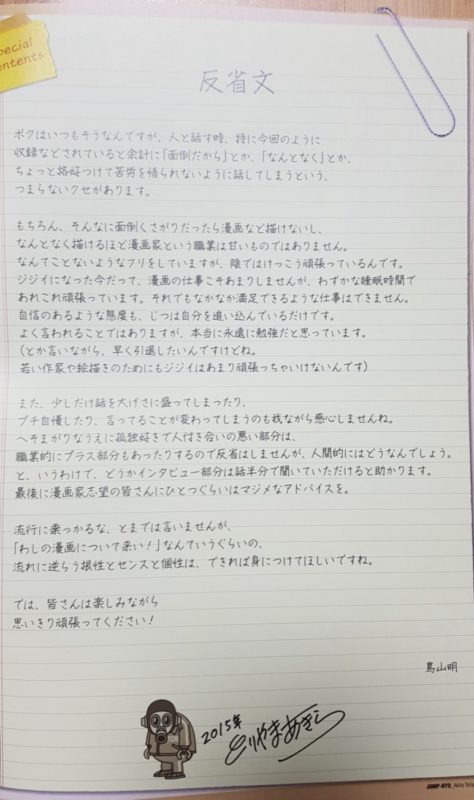 Special
Contents
反省文
ボクはいつもそうなんですが、人と話す時、特に今回のように
収録などされていると余計に「面倒だから」とか、「なんとなく」とか、
ちょっと格好つけて苦労を悟られないように話してしまうという、
つまらないクセがあります。
もちろん、そんなに面倒くさがりだったら漫画など描けないし、
なんとなく描けるほど漫画家という職業は甘いものではありません。
なんてことないようなフリをしていますが、陰ではけっこう頑張っているんです。
ジジイになった今だって、漫画の仕事こそあまりしませんが、わずかな睡眠時間で
あれこれ頑張っています。それでもなかなか満足できるような仕事はできません。
自信のあるような態度も、じつは自分を追い込んでいるだけです。
よく言われることではありますが、本当に永遠に勉強だと思っています。
(とか言いながら、早く引退したいんですけどね。
若い作家や絵描きのためにもジジイはあまり頑張っちゃいけないんです)
また、少しだけ話を大げさに盛ってしまったり、
プチ自慢したり、言ってることが変わってしまうのも我ながら感心しませんね。
へそまがりなうえに孤独好きで人付き合いの悪い部分は、
職業的にプラス部分もあったりするので反省はしませんが、人間的にはどうなんでしょう。
と、いうわけで、どうかインタビュー部分は話半分で聞いていただけると助かります。
最後に漫画家志望の皆さんにひとつぐらいはマジメなアドバイスを。
流行に乗っかるな、とまでは言いませんが、
「わしの漫画について来い!」なんていうぐらいの、
流れに逆らう根性とセンスと個性は、できれば身につけてほしいですね。
では、皆さんは楽しみながら
思いきり頑張ってください!
鳥山明
2015年
とりやまあきら
JUMP-RYU